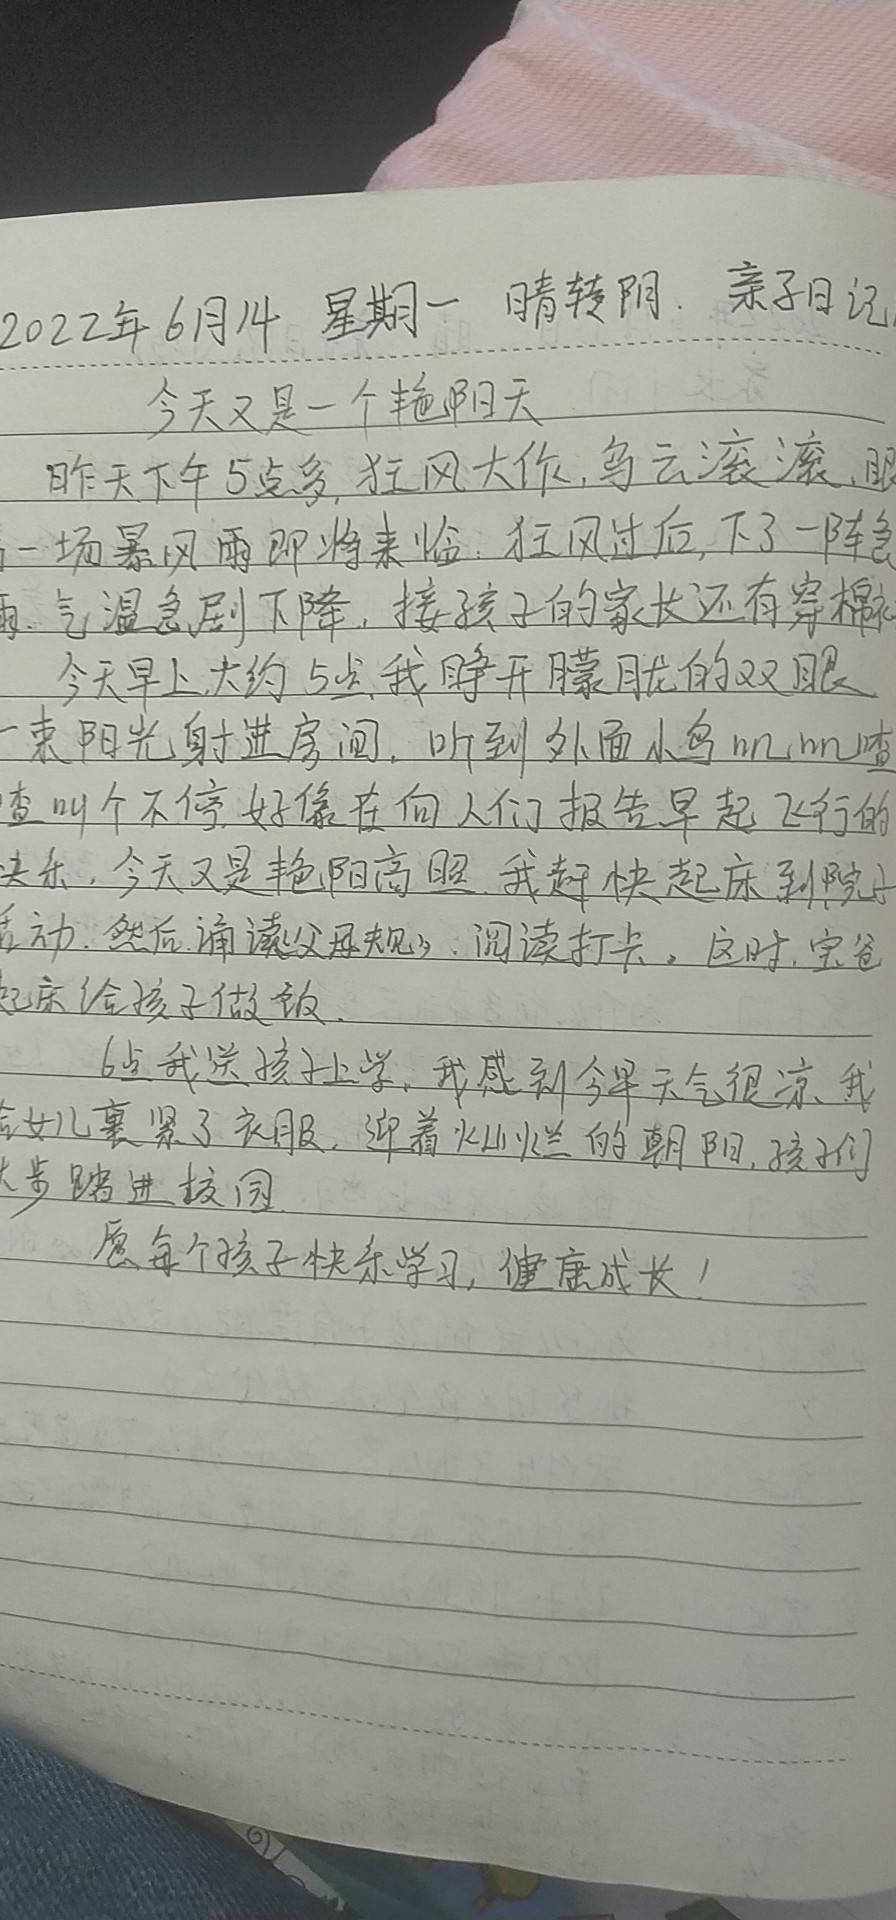 2022年6月14 星期一 晴转阴. 亲子日记
今天又是一个艳阳天
昨天下午5点多,狂风大作,乌云滚滚,眼
一场暴风雨即将来临.狂风过后,下了一阵急
雨.气温急剧下降,接孩子的家长还有穿棉衣
今天早上大约5点,我睁开朦胧的双眼
一束阳光射进房间,听到外面小鸟叽叽喳
喳叫个不停,好像在向人们报告早起飞行的
快乐,今天又是艳阳高照,我赶快起床到院子
活动.然后诵读《父母规》.阅读打卡。这时,宝爸
起床给孩子做饭.
6点我送孩子上学,我感到今早天气很凉,我
给女儿裹紧了衣服,迎着灿烂的朝阳,孩子们
大步踏进校园.
愿每个孩子快乐学习,健康成长!